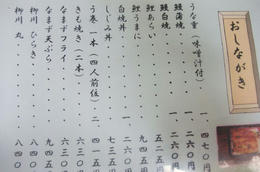 おしながき
うな重(味噌汁付)・・一、四七〇円
鰻蒲焼・・・・・一、二六〇円
鰻白焼・・・・・一、二六〇円
鯉あらい・・・・・五二五円
鯉うまに・・・・・九四五円
白焼丼・・・・・一、二六〇円
しじみ丼・・・・・七三五円
う巻 一本(四人前位)二、四一五円
きも焼き(二本)・・・六三〇円
なまずフライ・・・・六三〇円
なまず天ぷら・・・・九四五
柳川 ひらき・・・・八四〇
柳川 丸・・・・・八四〇